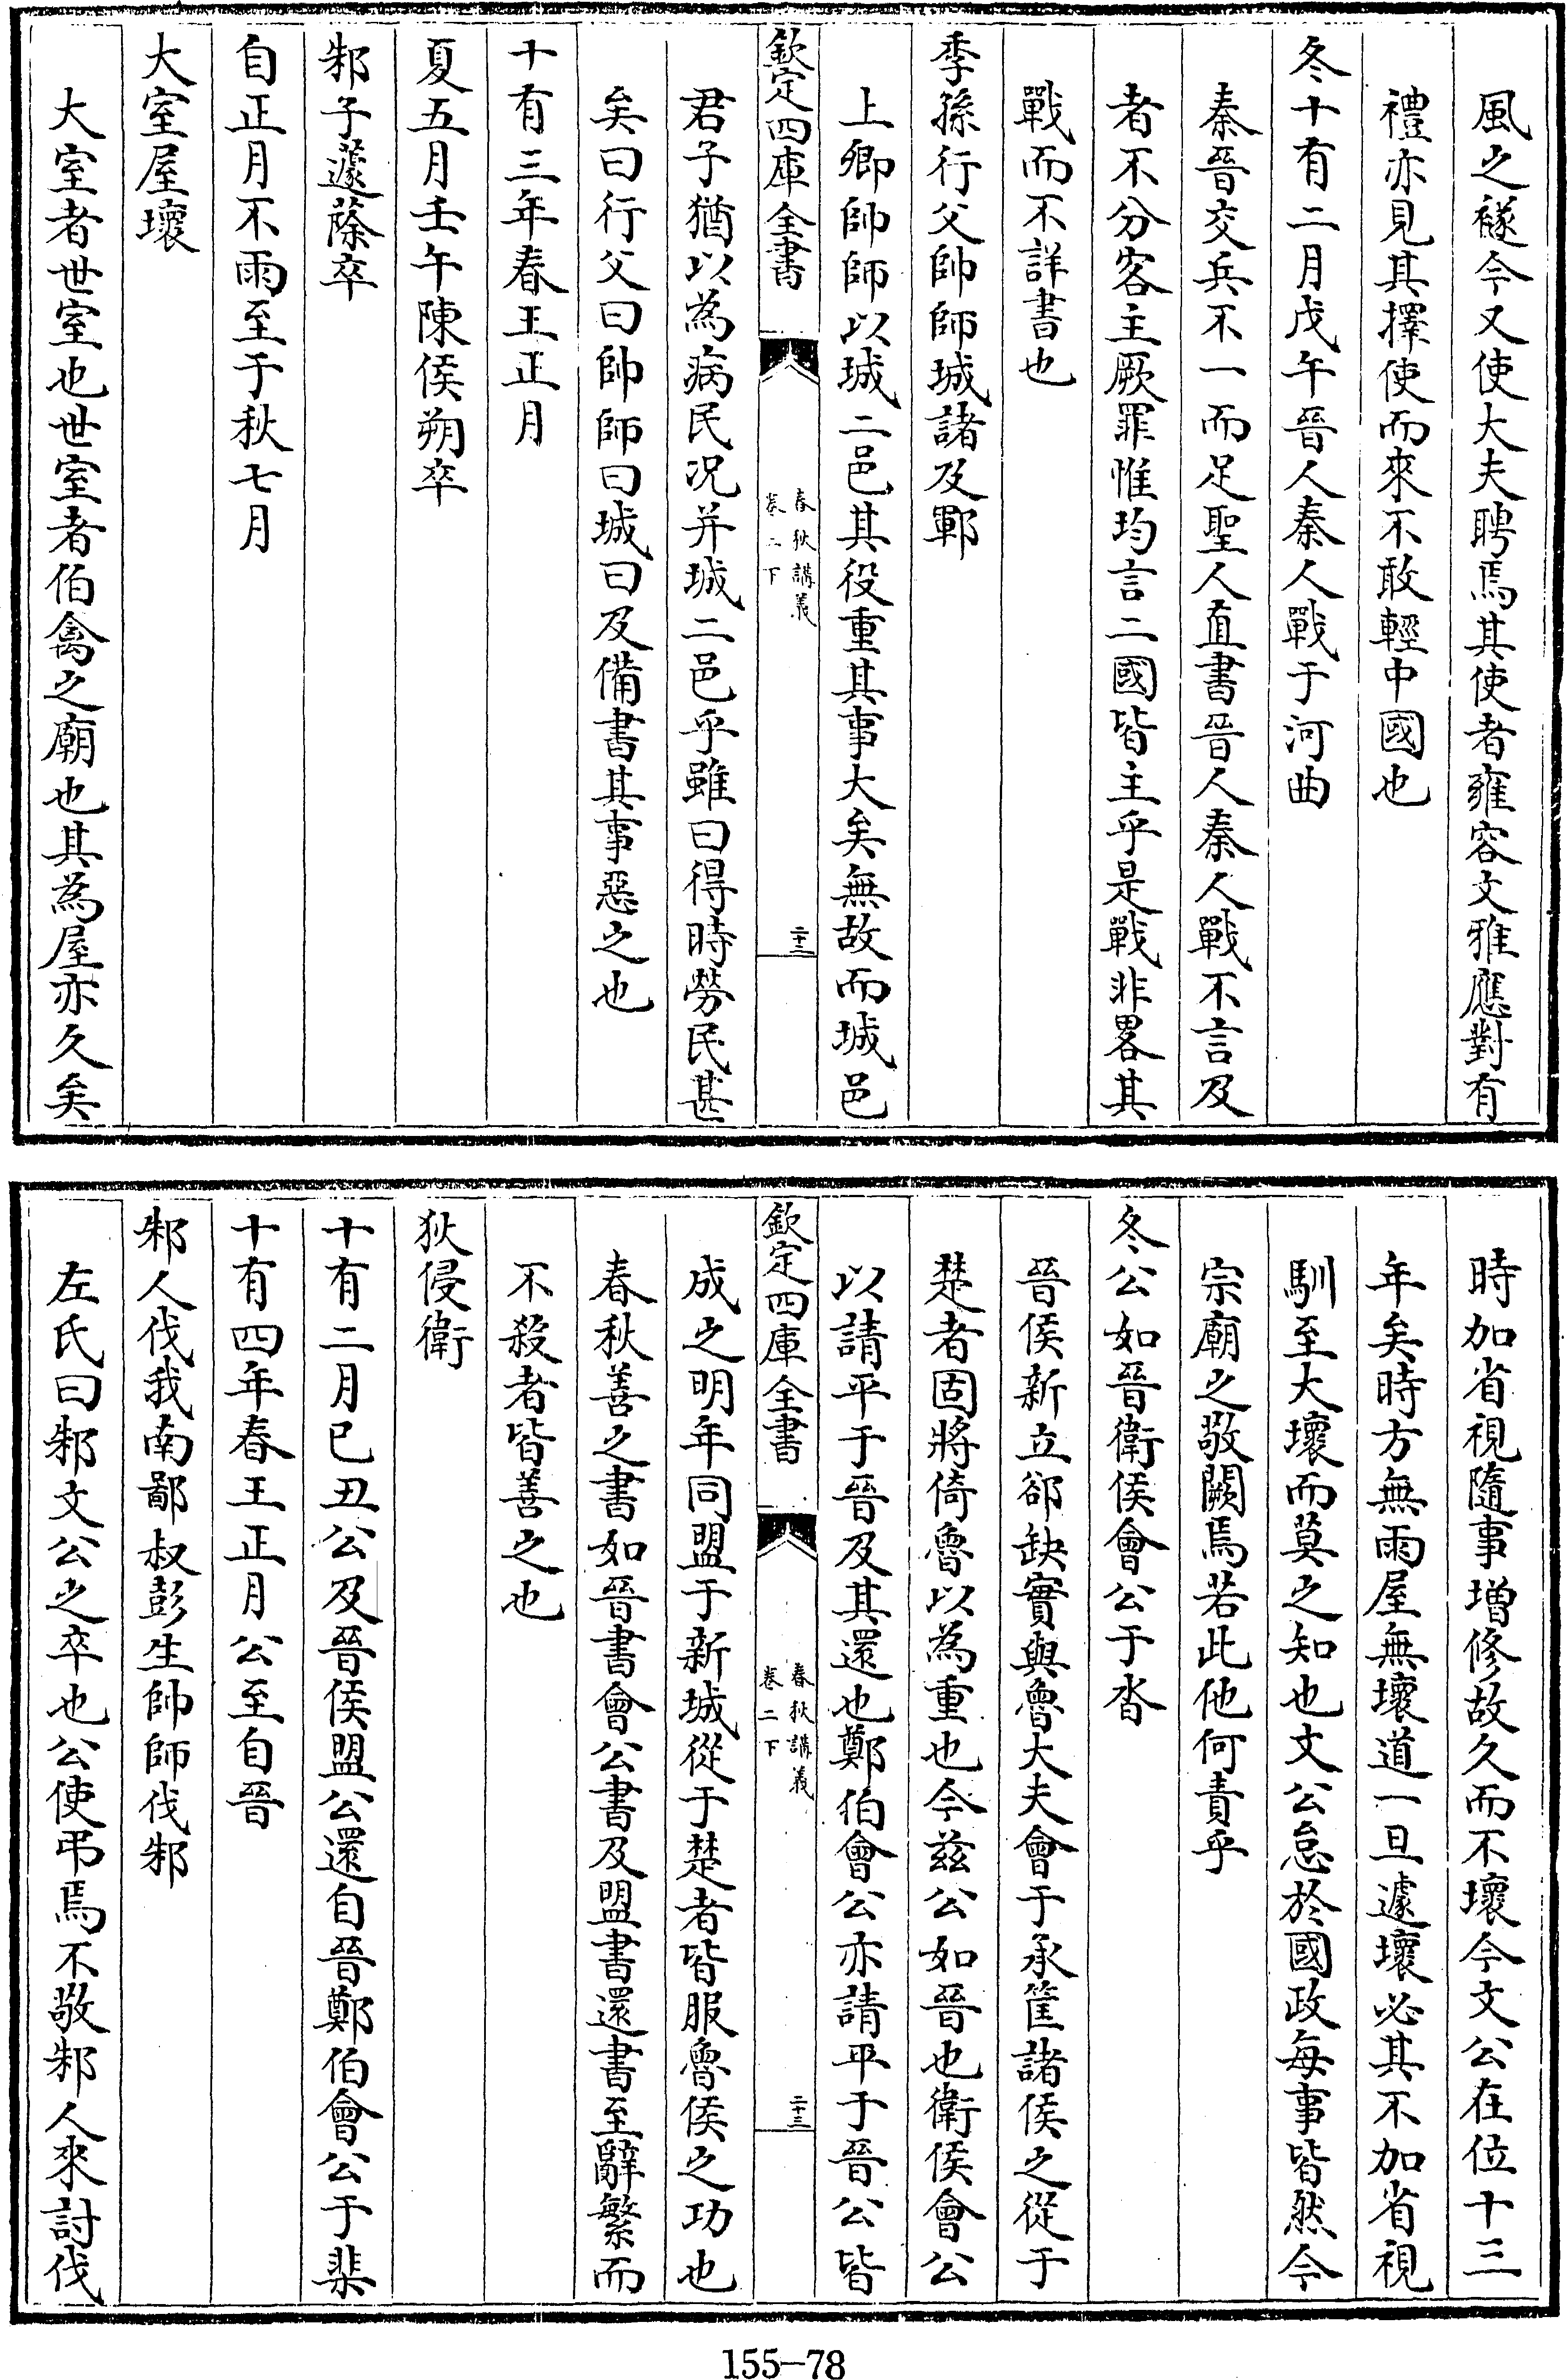 風之襚今又使大夫聘焉其使者雍容文雅應對有
禮亦見其擇使而來不敢輕中國也
冬十有二月戊午晉人秦人戰于河曲
秦晉交兵不一而足聖人直書晉人秦人戰不言及
者不分客主厥罪惟均言二國皆主乎是戰非畧其
戰而不詳書也
季孫行父帥師城諸及鄆
上卿帥師以城二邑其役重其事大矣無故而城邑
欽定四庫全書
春秋講義
卷二下
二十三
君子猶以為病民况并城二邑乎雖曰得時勞民甚
矣曰行父曰帥師曰城曰及備書其事惡之也
十有三年春王正月
夏五月壬午陳侯朔卒
邾子蘧蒢卒
自正月不雨至于秋七月
大室屋壞
大室者世室也世室者伯禽之廟也其為屋亦久矣
時加省視隨事增修故久而不壞今文公在位十三
年矣時方無雨屋無壞道一旦遽壞必其不加省視
馴至大壞而莫之知也文公怠於國政每事皆然今
宗廟之敬闕焉若此他何責乎
冬公如晉衛侯會公于沓
晉侯新立郤缺實與魯大夫會于承筐諸侯之從于
楚者固將倚魯以為重也今兹公如晉也衛侯會公
以請平于晉及其還也鄭伯會公亦請平于晉公皆
欽定四庫全書
春秋講義
卷二下
二十三
成之明年同盟于新城從于楚者皆服魯侯之功也
春秋善之書如晉書會公書及盟書還書至辭繁而
不殺者皆善之也
狄侵衛
十有二月已丑公及晉侯盟公還自晉鄭伯會公于棐
十有四年春王正月公至自晉
邾人伐我南鄙叔彭生帥師伐邾
左氏曰邾文公之卒也公使弔焉不敬邾人來討伐
155-78